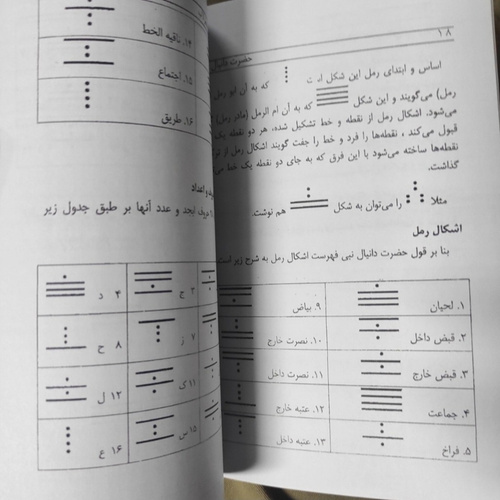 ۱۸
حضرت دانیال
اساس و ابتدای رمل این شکل است که به آن ابو
رمل) می‌گویند و این شکل که به آن ام الرمل (مادر رمل)
می‌شود. اشکال رمل از نقطه و خط تشکیل شده، هر دو نقطه یک
قبول می‌کند ، نقطه‌ها را فرد و خط را جفت گویند اشکال رمل از
نقطه‌ها ساخته می‌شود با این فرق که به جای دو نقطه یک خط
گذاشت.
مثلا را می‌توان به شکل هم نوشت.
اشکال رمل
بنا بر قول حضرت دانیال نبی فهرست اشکال رمل به شرح زیر است
۱. لحیان
۹. بیاض
۲. قبض داخل
۱۰. نصرت خارج
۳. قبض خارج
۱۱. نصرت داخل
۴. جماعت
۱۲. عتبه خارج
۵. فراخ
۱۳. عتبه داخل
الخط
۱۵. اجتماع
۱۶. طریق
و اعداد
حروف ابجد و عدد آنها بر طبق جدول زیر
۳ ج
۴ د
۷ ز
۸ ح
۱۱ ک
۱۲ ل
۱۵ س
۱۶ ع